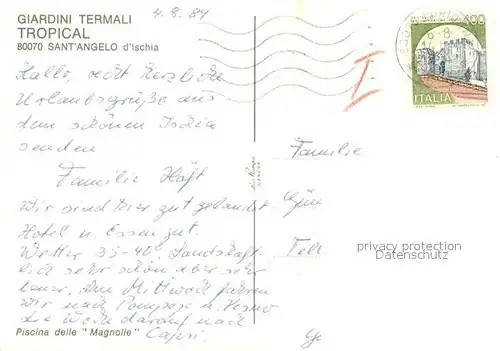 GIARDINI TERMALI
TROPICAL
80070 SANT'ANGELO d'Ischia
4.8.84
400
ITALIA
Hallo, recht herzliche
Urlaubsgrüße aus
dem schönen Ischia
senden
Familie
Wir sind hier gut gelandet
Hotel u. Essen gut.
Wetter 35-40° Landschaft-
lich sehr schön aber sehr
teuer. Am Mittwoch fahren
wir nach Pompeji u. Vesuv
die Woche darauf nach
Capri.
Piscina delle "Magnolie"
Familie
privacy protection